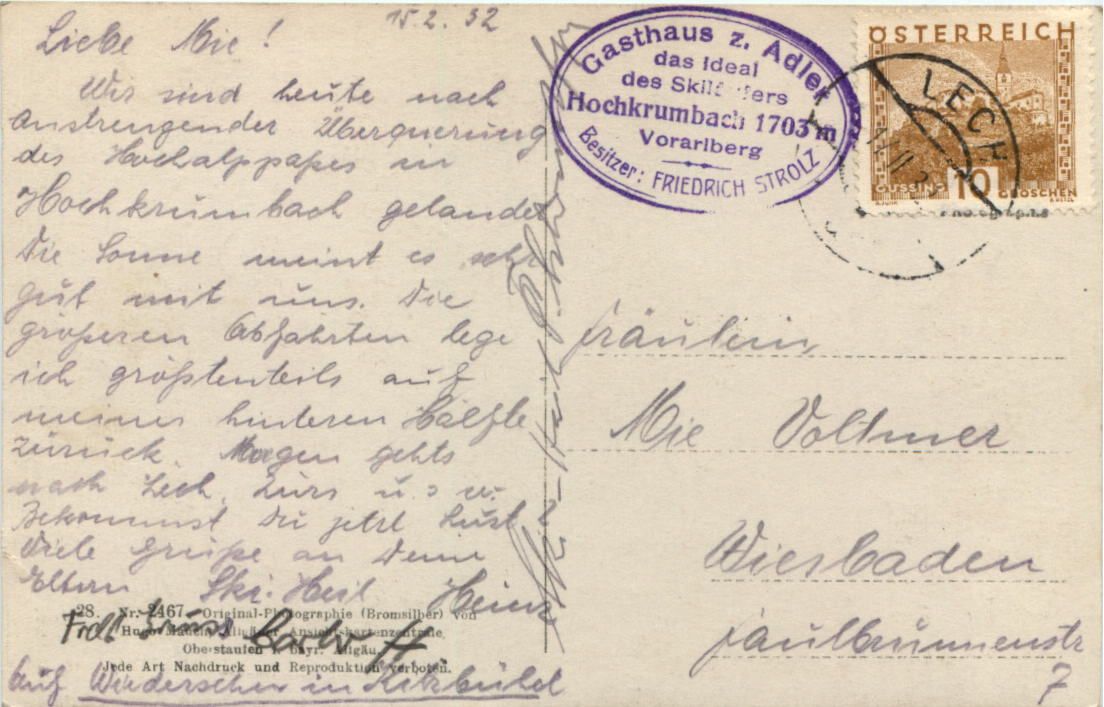 15.2.32
Liebe Mie!
Wir sind heute nach
anstrengender Überquerung
des Hochalppaßes in
Hochkrumbach gelandet
Die Sonne meint es sehr
gut mit uns. Die
größeren Abfahrten lege
ich größtenteils auf
meiner hinteren Hälfte
zurück. Morgen gehts
nach Lech, Zürs u.s.w.
Bekommst Du jetzt Lust
Viele Grüße an Deine
Eltern Ski-Heil Heinz
28. Nr. 2467. Original-Photographie (Bromsilber) von
Hugo Allgäuer Ansichtskartenzentrale,
Oberstaufen bayr. Allgäu.
Jede Art Nachdruck und Reproduktion verboten.
Frdl. Gruss
auf Wiedersehen in Kitzbühel
Gasthaus z. Adler
das Ideal
des Skiläufers
Hochkrumbach 1703 m
Vorarlberg
Besitzer: FRIEDRICH STROLZ
ÖSTERREICH
GÜSSING 10 GROSCHEN
LECH
Fräulein
Mie Vollmer
Wiesbaden
Faulbrunnenstr
7